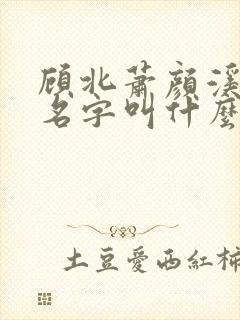 顾北蕭顔溪
名字叫什麼
土豆愛西紅柿